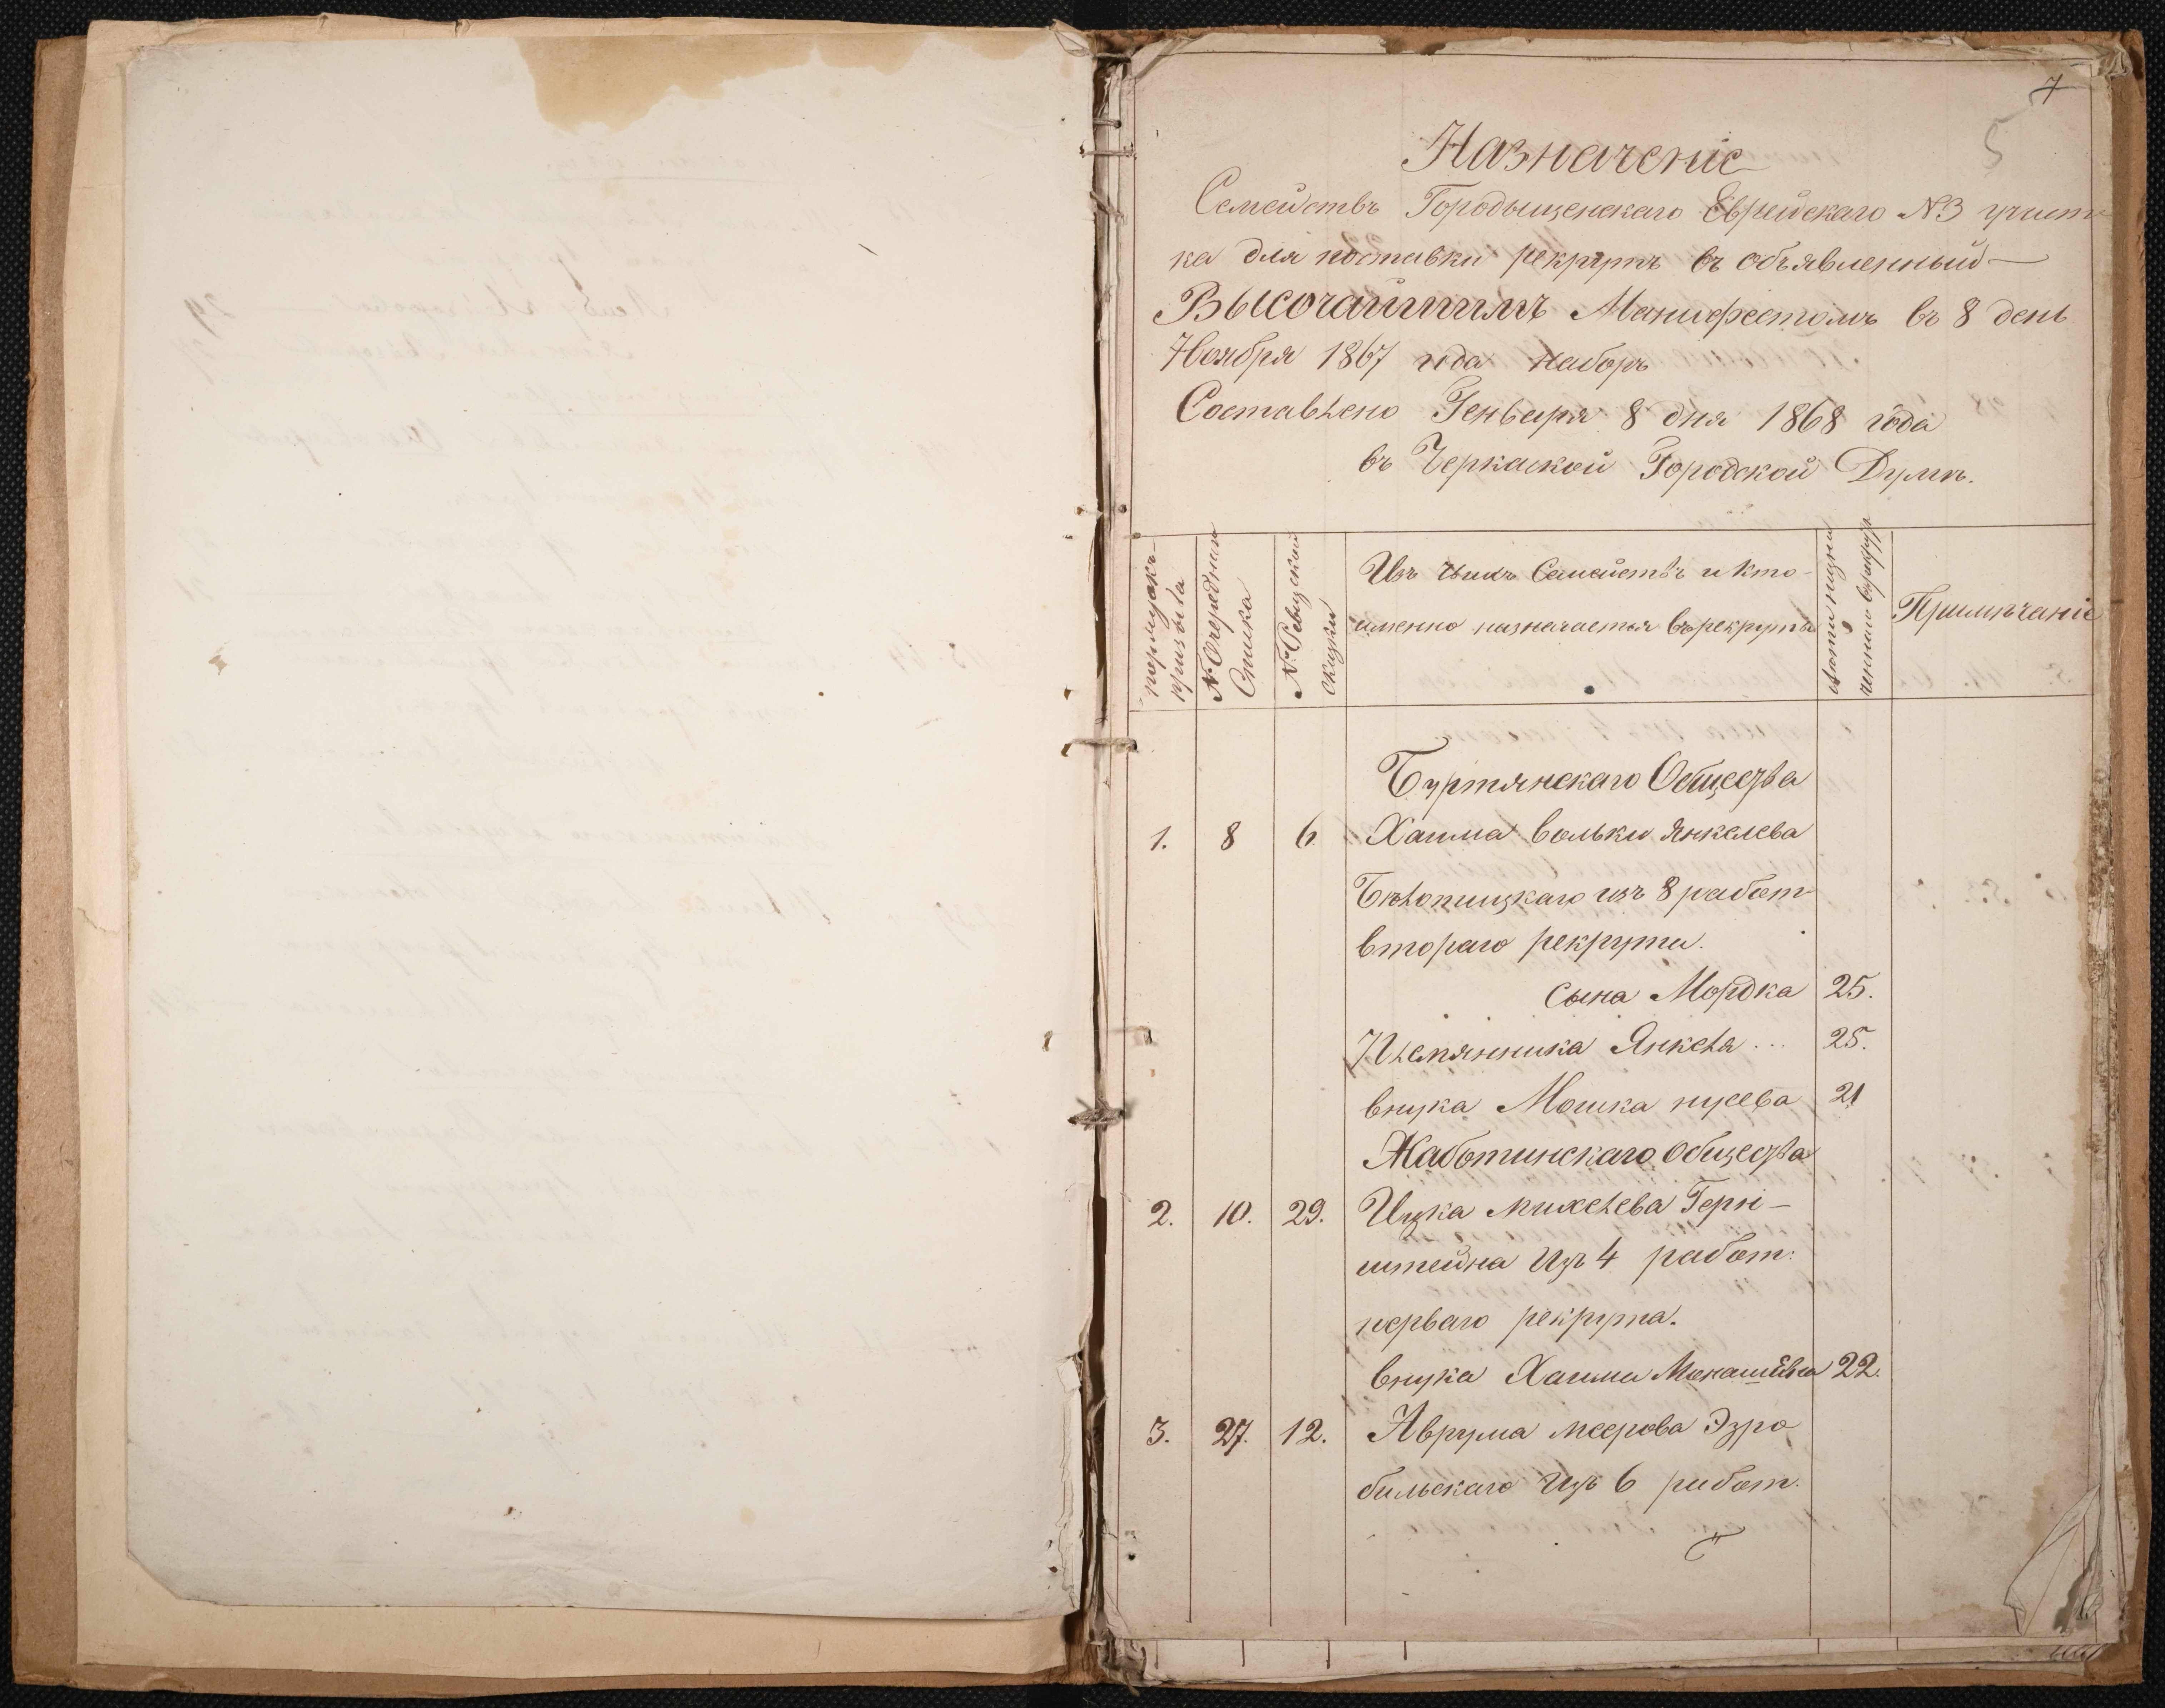 7
5
Назначеніе
Семействъ Городыщенскаго Еврейскаго №3 участ
ка для поставки рекрутъ въ объявленный
Высочайшимъ Манифестомъ въ 8 день
Ноября 1867 года наборъ
Составлено Генваря 8 дня 1868 года
въ Черкаской Городской Думѣ.
№ Очереднаго
Списка
№ Ревизской
сказки
Изъ чьихъ Семействъ и кто
именно назначается въ рекруты
Примѣчаніе
Буртянскаго Общества
1. 8 6 Хаима Вольки Янкелева
Бѣлопицкаго изъ 8 работ
втораго рекрута.
Сына Мордка 25.
Племянника Янкела ... 25.
внука Мошка нусева 21
Жаботинскаго Общества
2. 10. 29. Ицка Михелева Герн-
штейна изъ 4 работ:
перваго рекрута.
внука Хаима 22.
3. 27. 12. Аврума меерова Эзро
бильскаго изъ 6 работ.